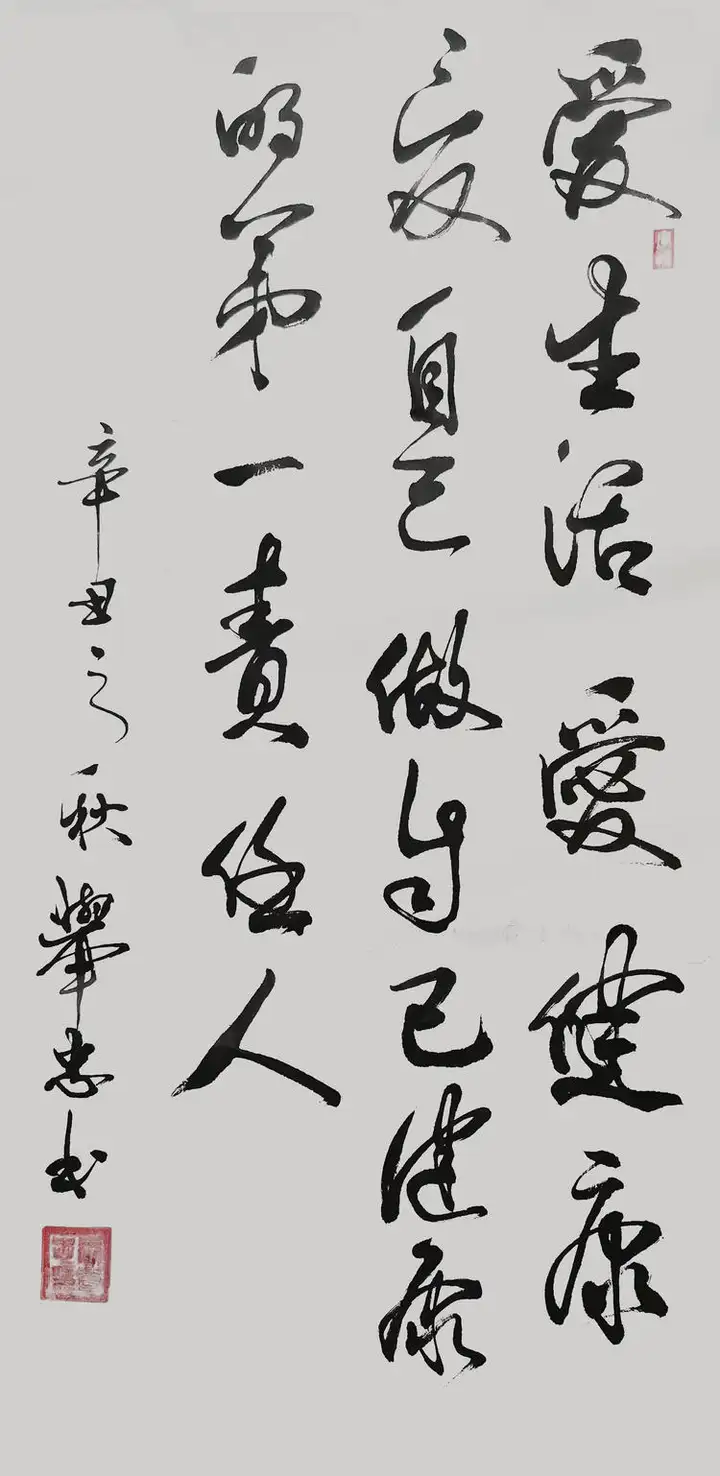 愛生活愛健康
愛自己做自己健康
的第一責任人
辛丑之秋肇忠书